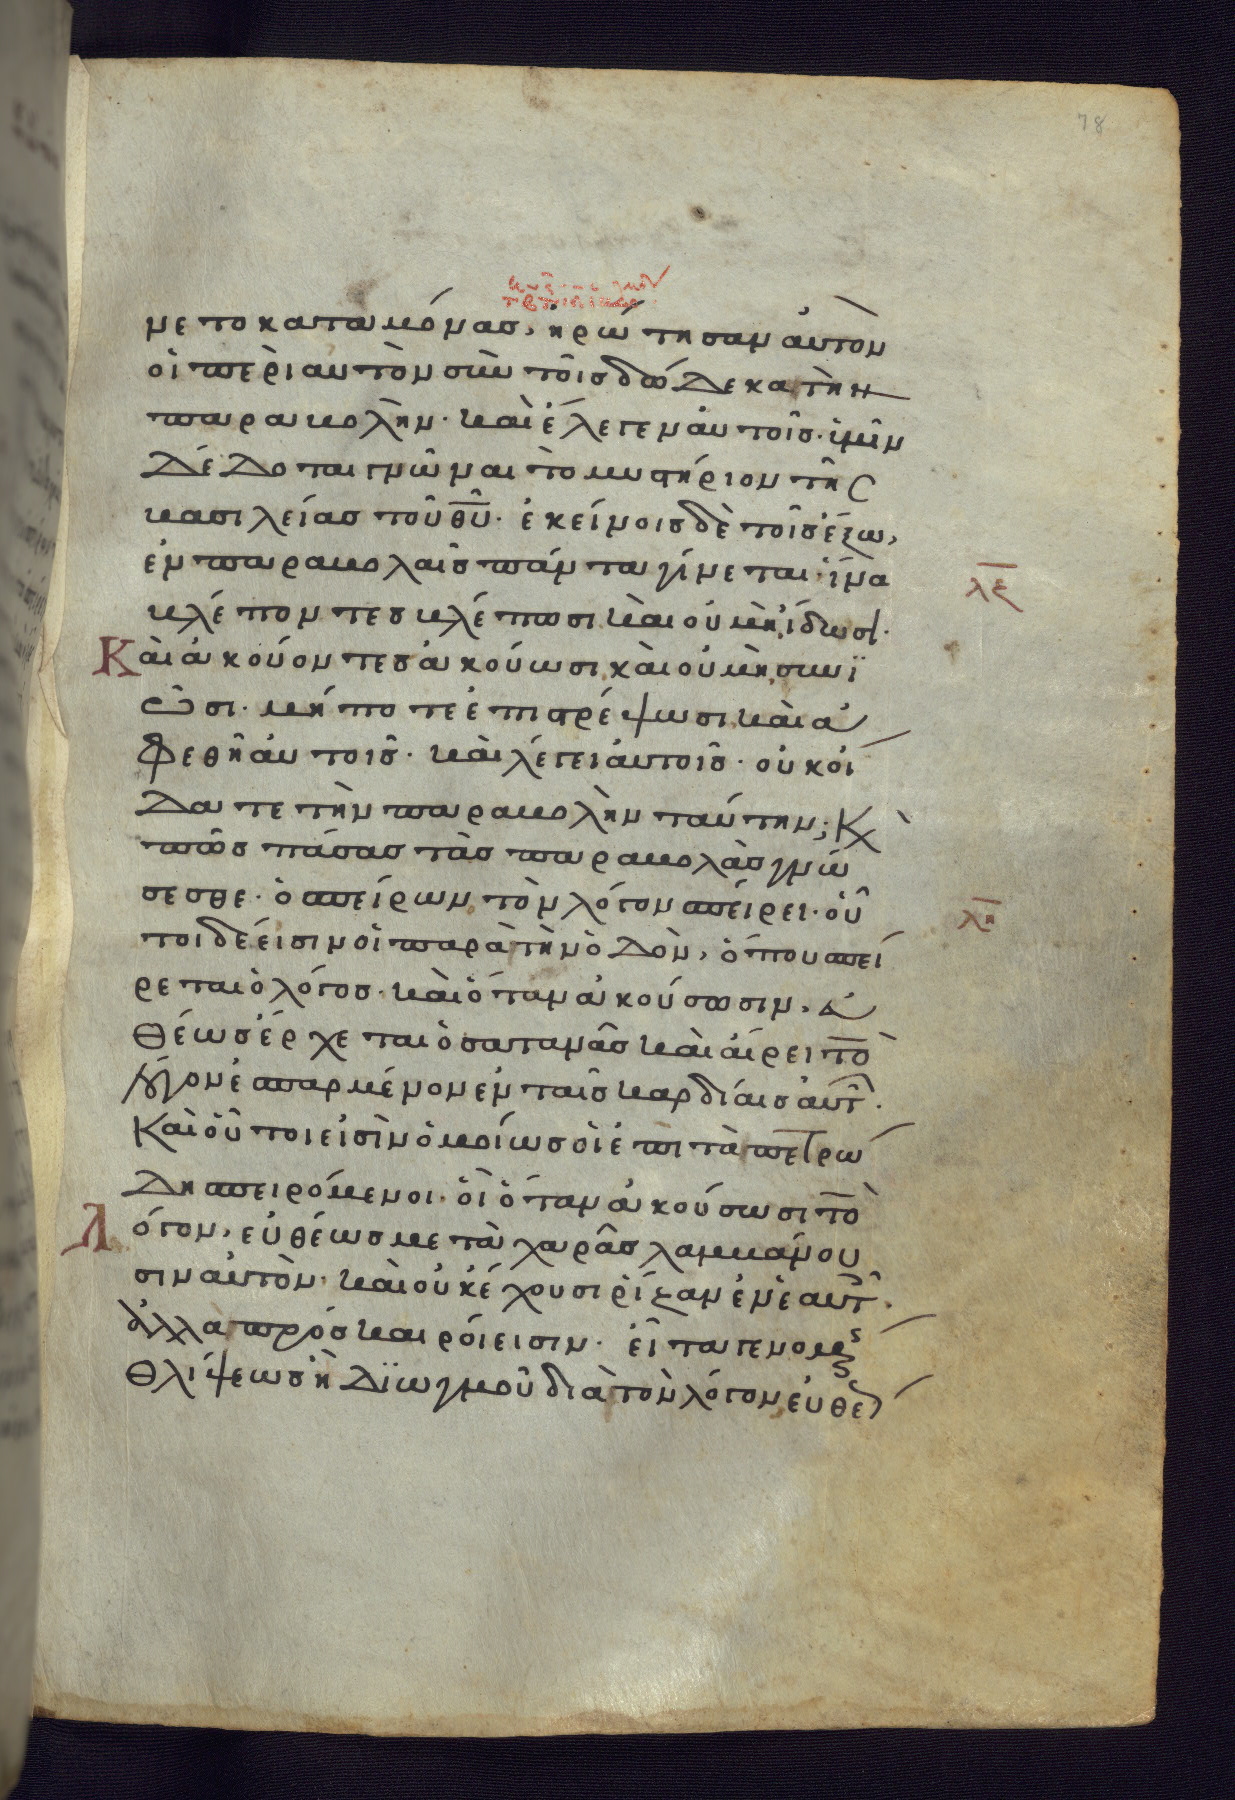 78
νετο καταμόνας, ἠρώτησαν αὐτὸν
οἱ περὶ αὐτὸν σὺν τοῖς δώδεκα τὴν
παραβολήν. καὶ ἔλεγεν αὐτοῖς. ὑμῖν
δέδοται γνῶναι τὸ μυστήριον τῆς
βασιλείας τοῦ θ̅υ̅. ἐκείνοις δὲ τοῖς ἔξω,
ἐν παραβολαῖς πάντα γίνεται. ἵνα
λε
βλέποντες βλέπωσι καὶ οὐ μὴ ἴδωσι.
Καὶ ἀκούοντες ἀκούωσι καὶ οὐ μὴ συνϊ
ῶσι. μή ποτε ἐπιστρέψωσι καὶ ἀ
φεθῆ αὐτοῖς. καὶ λέγει αὐτοῖς. οὐκ οἴ
δατε τὴν παραβολὴν ταύτην; Κ̀
πῶς πάσας τὰς παραβολὰς γνώ
σεσθε. ὁ σπείρων τὸν λόγον σπείρει. οὗ
λη
τοι δέ εἰσιν οἱ παρὰ τὴν ὁδὸν, ὅπου σπεί
ρεται ὁ λόγος. καὶ ὅταν ἀκούσωσιν, εὐ
θέως ἔρχεται ὁ σατανᾶς καὶ αἴρει τὸ
λόγον ἐσπαρμένον ἐν ταῖς καρδίαις αὐτ.
Καὶ οὗτοι εἰσὶν ὁμοίως οἱ ἐπὶ τὰ πετρώ
δη σπειρόμενοι. οἳ ὅταν ἀκούσωσι τὸ
λόγον, εὐθέως μετὰ χαρᾶς λαμβάνου
σιν αὐτόν. καὶ οὐκ ἔχουσι ῥίζαν ἐν ἑαυτ.
ἀλλὰ πρός καιροί εἰσιν. εἶτα γενομς
θλίψεως ἢ διωγμοῦ διὰ τὸν λόγον εὐθέ